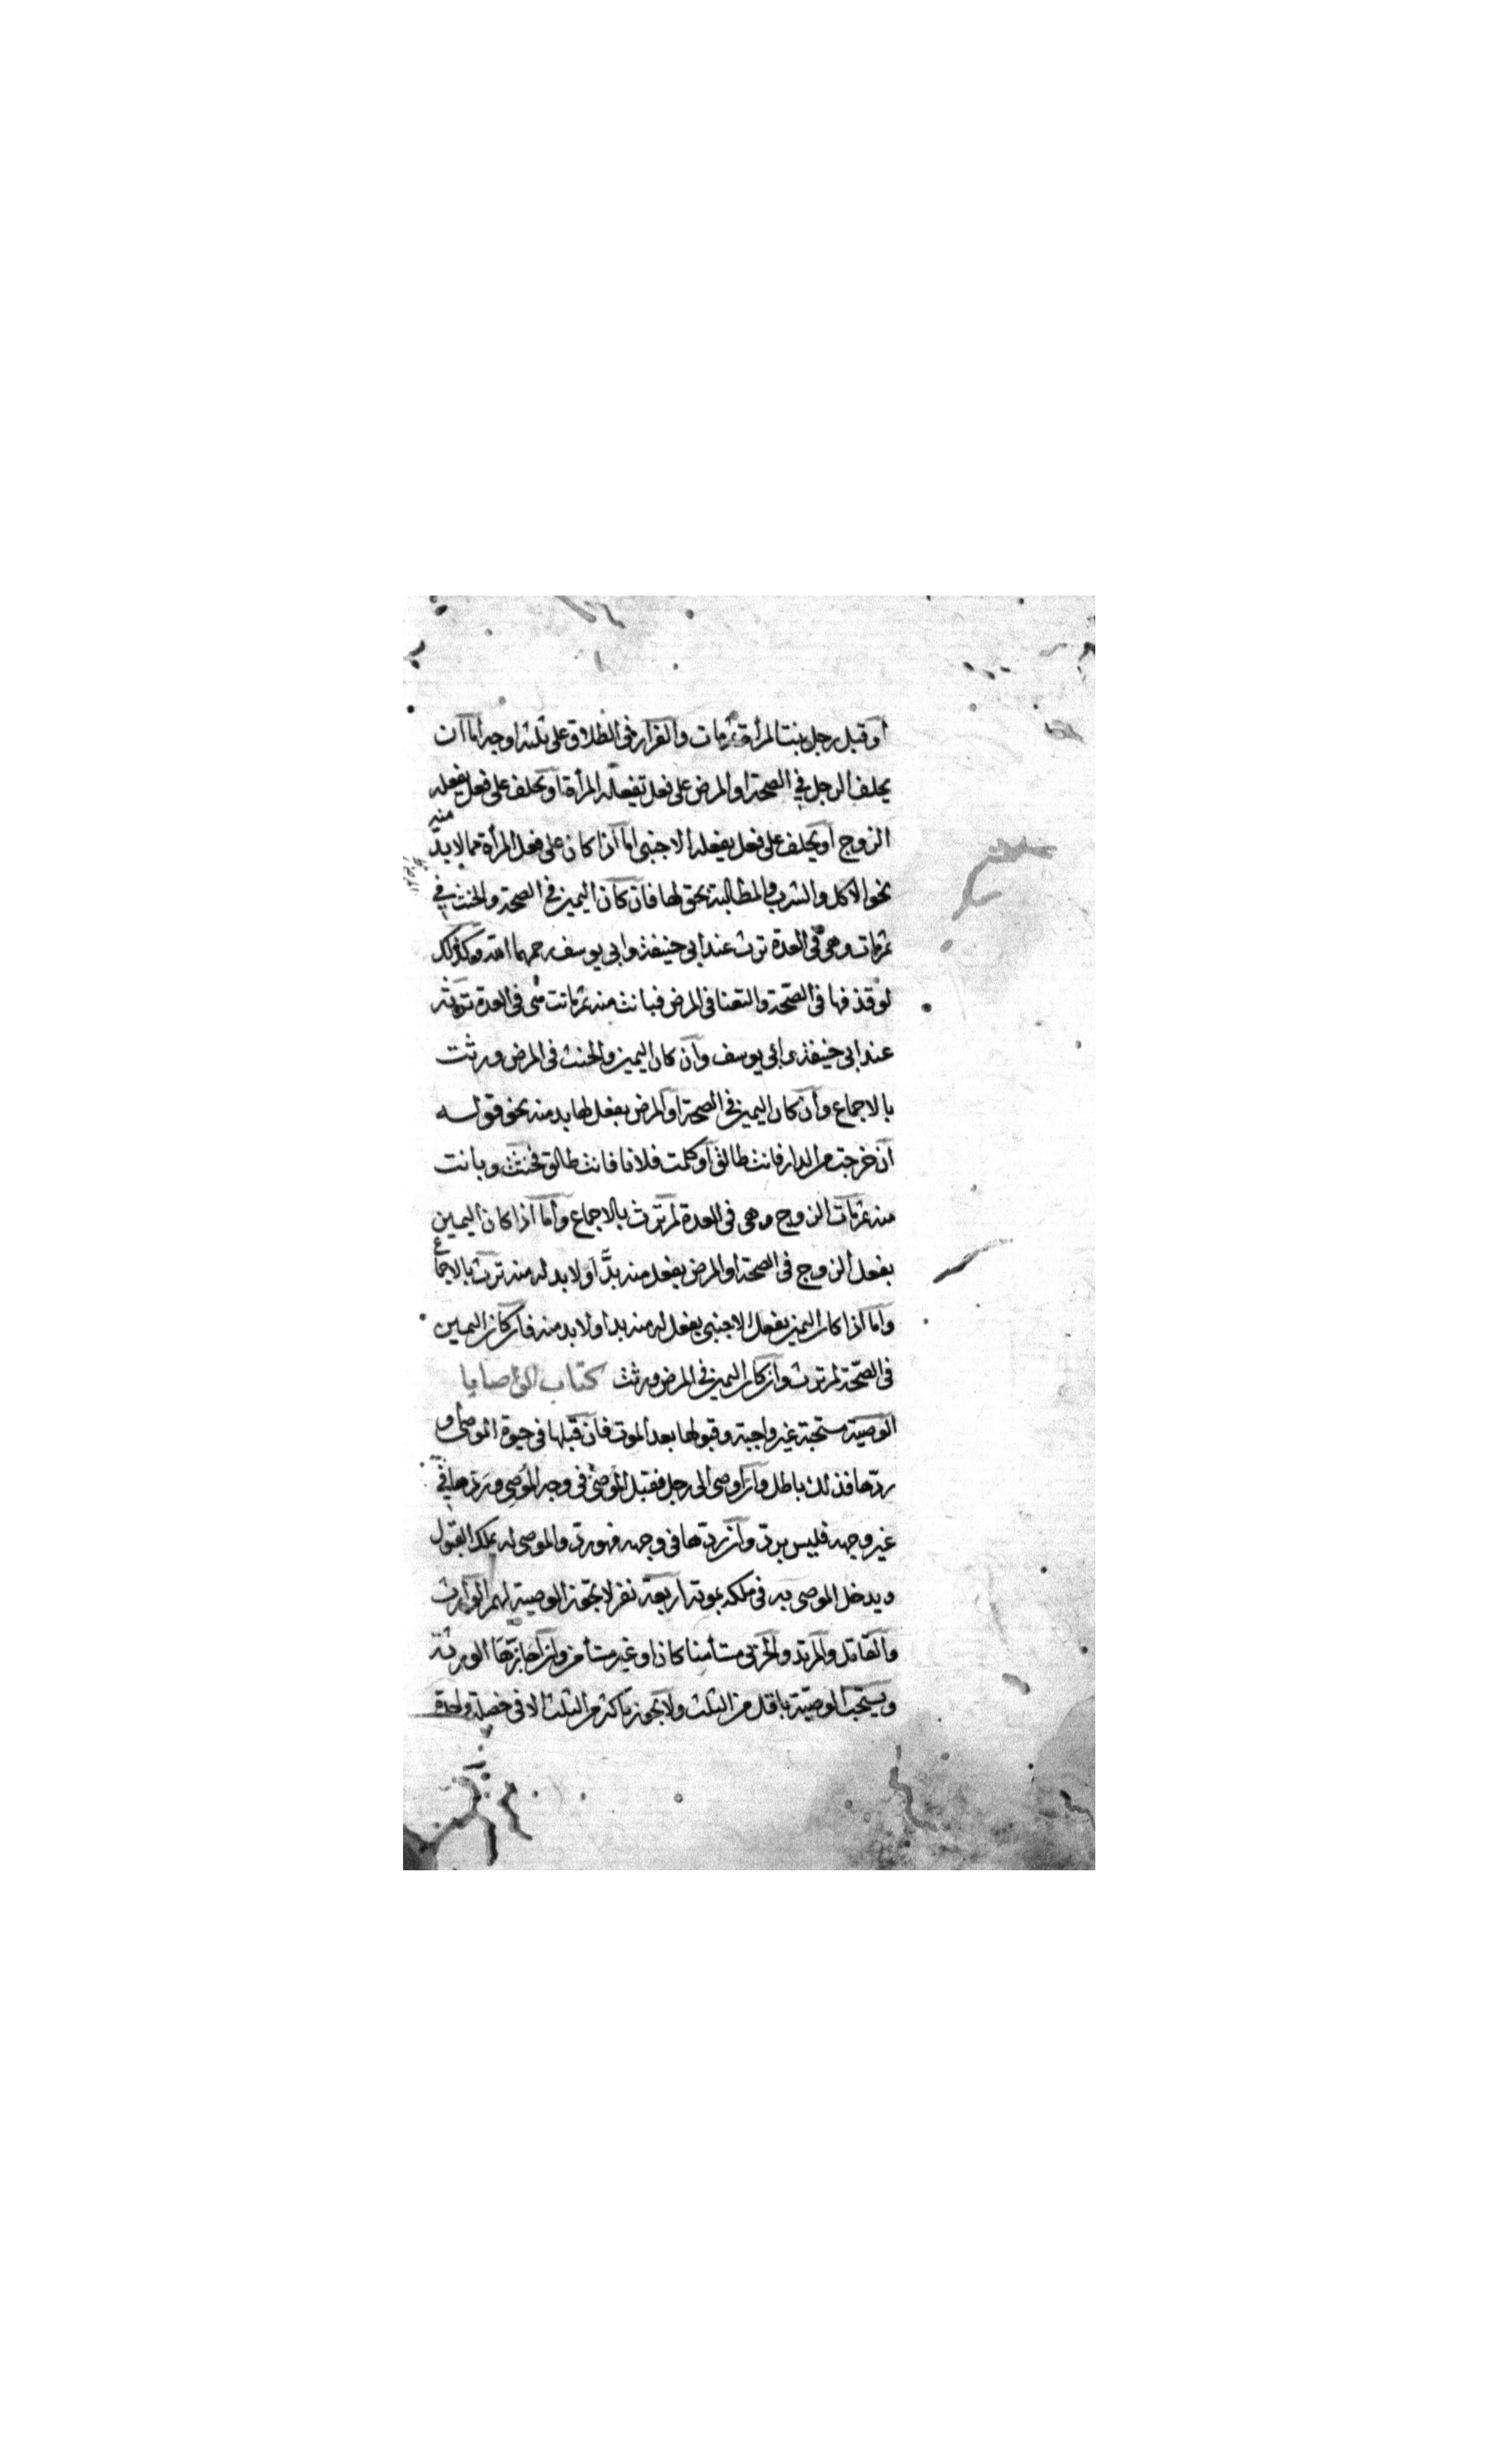 او قبل رجل بنت المرأة ثم مات والفرار فى الطلاق على ثلثة اوجه اما ان
يحلف الرجل فى الصحة او المرض على فعل تفعله المرأة او يحلف على فعل يفعله
الزوج او يحلف على فعل يفعله الاجنبى اما اذا كان على فعل المرأة مما لابد منه
نحو الاكل والشرب والمطالبة بحق لها فان كان اليمين فى الصحة والحنث فى
ثم مات وهى فى العدة ترث عند ابى حنيفة وابى يوسف رحمهما الله وكذلك
لو قذفها فى الصحة والتعنا فى المرض فبانت منه ثم مات هى فى العدة ترثه
عند ابى حنيفة وابى يوسف وان كان اليمين والحنث فى المرض ورثت
بالاجماع وان كان اليمين فى الصحة او المرض بفعل لها بد منه نحو قوله
ان خرجت من الدار فانت طالق او كلمت فلانا فانت طالق فحنثت وبانت
منه ثم مات الزوج وهى فى العدة لم ترث بالاجماع واما اذا كان اليمين
بفعل الزوج فى الصحة او المرض بفعل منه بدّ او لابد له منه ترث بالاجماع
واما اذا كان اليمين بفعل الاجنبى بفعل له منه بد او لابد منه فان كان اليمين
فى الصحة لم ترث وان كان اليمين فى المرض ورثت كتاب الوصايا
الوصية مستحبة غير واجبة وقبولها بعد الموت فان قبلها فى حيوة الموصى او
ردّها فذلك باطل وان اوصى الى رجل فقبل الوصى فى وجه الموصى وردّها فى
غير وجهه فليس بردّ وان ردّها فى وجهه فهو ردّ والموصى له يملك بالقبول
ويدخل الموصى به فى ملكه بموته اربعة نفر لا تجوز الوصية لهم الوارث
والقاتل والمرتد والحربى مستأمنا كان او غير مستأمن وان اجازتها الورثة
ويستحب الوصيّة باقل من الثلث ولا تجوز باكثر من الثلث الا فى خصلة واحدة